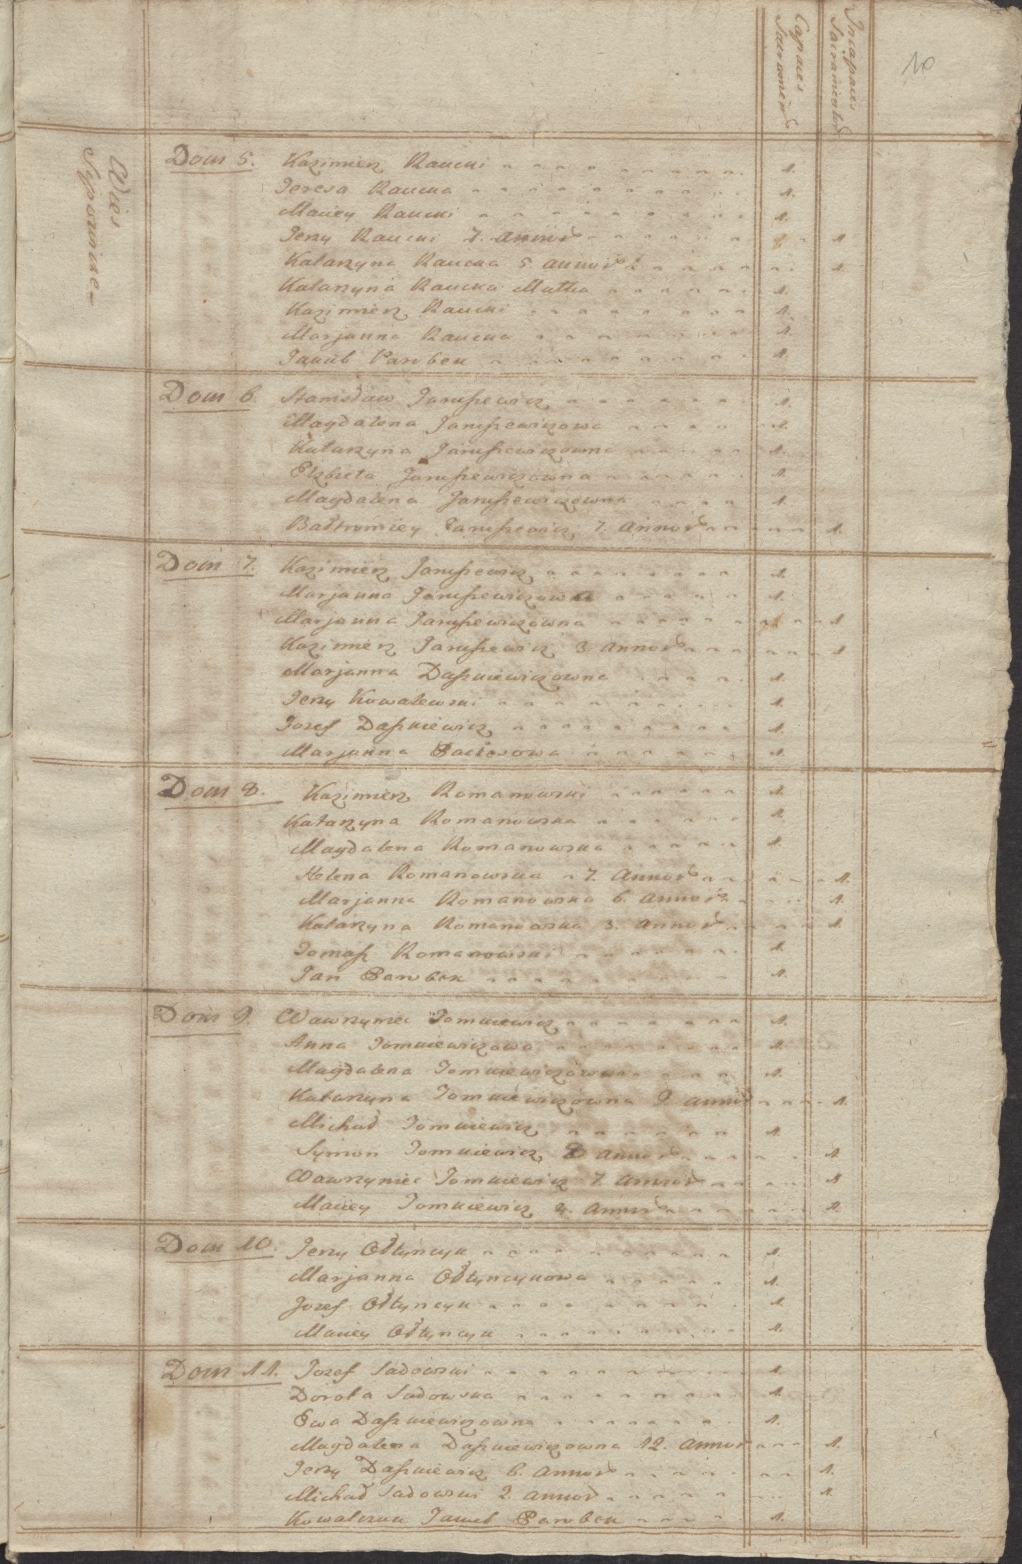 Capaces Sacrament
Incapaces Sacrament
10
Wieś
Dom 5. Kazimierz Raucki 1.
Teresa Raucka 1.
Maciey Raucki 1.
Jerzy Raucki 7. annor 1
Katarzyna Raucka 5 annor 1.
Katarzyna Raucka Matka 1.
Kazimierz Raucki 1.
Marjanna Raucka 1.
Jakub Parobek 1.
Dom 6 Stanisław Jaruszewicz 1.
Magdalena Jaruszewiczowa 1.
Katarzyna Jaruszewiczowna 1.
Elzbieta Jaruszewiczowna 1.
Magdalena Jaruszewiczowna 1
Bałtromiey Jaruszewicz 7. annor 1.
Dom 7. Kazimierz Jaruszewicz 1.
Marjanna Jaruszewiczowna 1.
Marjanna Jaruszewiczowna 1
Kazimierz Jaruszewicz 3 annor 1
Marjanna Daszkiewiczowna 1.
Jerzy Kowalewski 1.
Jozef Daszkiewicz 1.
Marjanna 1.
Dom 8. Kazimierz Romanowski 1.
Katarzyna Romanowska 1.
Magdalena Romanowska 1.
Helena Romanowska 7. annor 1.
Marjanna Romanowska 6. annor 1.
Katarzyna Romanowska 3. annor 1.
Tomasz Romanowski 1.
Jan Parobek 1.
Dom 9. Wawrzyniec Tomkiewicz 1.
Anna Tomkiewiczowa 1.
Magdalena Tomkiewiczowna 1.
Katarzyna Tomkiewiczowna 9 annor 1.
Michał Tomkiewicz 1.
Symon Tomkiewicz 8 annor 1
Wawrzyniec Tomkiewicz 7. annor 1
Maciey Tomkiewicz annor 1.
Dom 10. Jerzy Ołtyńcyk 1.
Marjanna Ołtyńcykowa 1.
Jozef Ołtyńcyk 1.
Maciey Ołtyńcyk 1.
Dom 11. Jozef Sadowski 1.
Dorota Sadowska 1.
Ewa Daszkiewiczowna 1.
Magdalena Daszkiewiczowna 12. annor 1.
Jerzy Daszkiewicz 6. annor 1.
Michał Sadowski 2. annor 1.
Parobek 1.